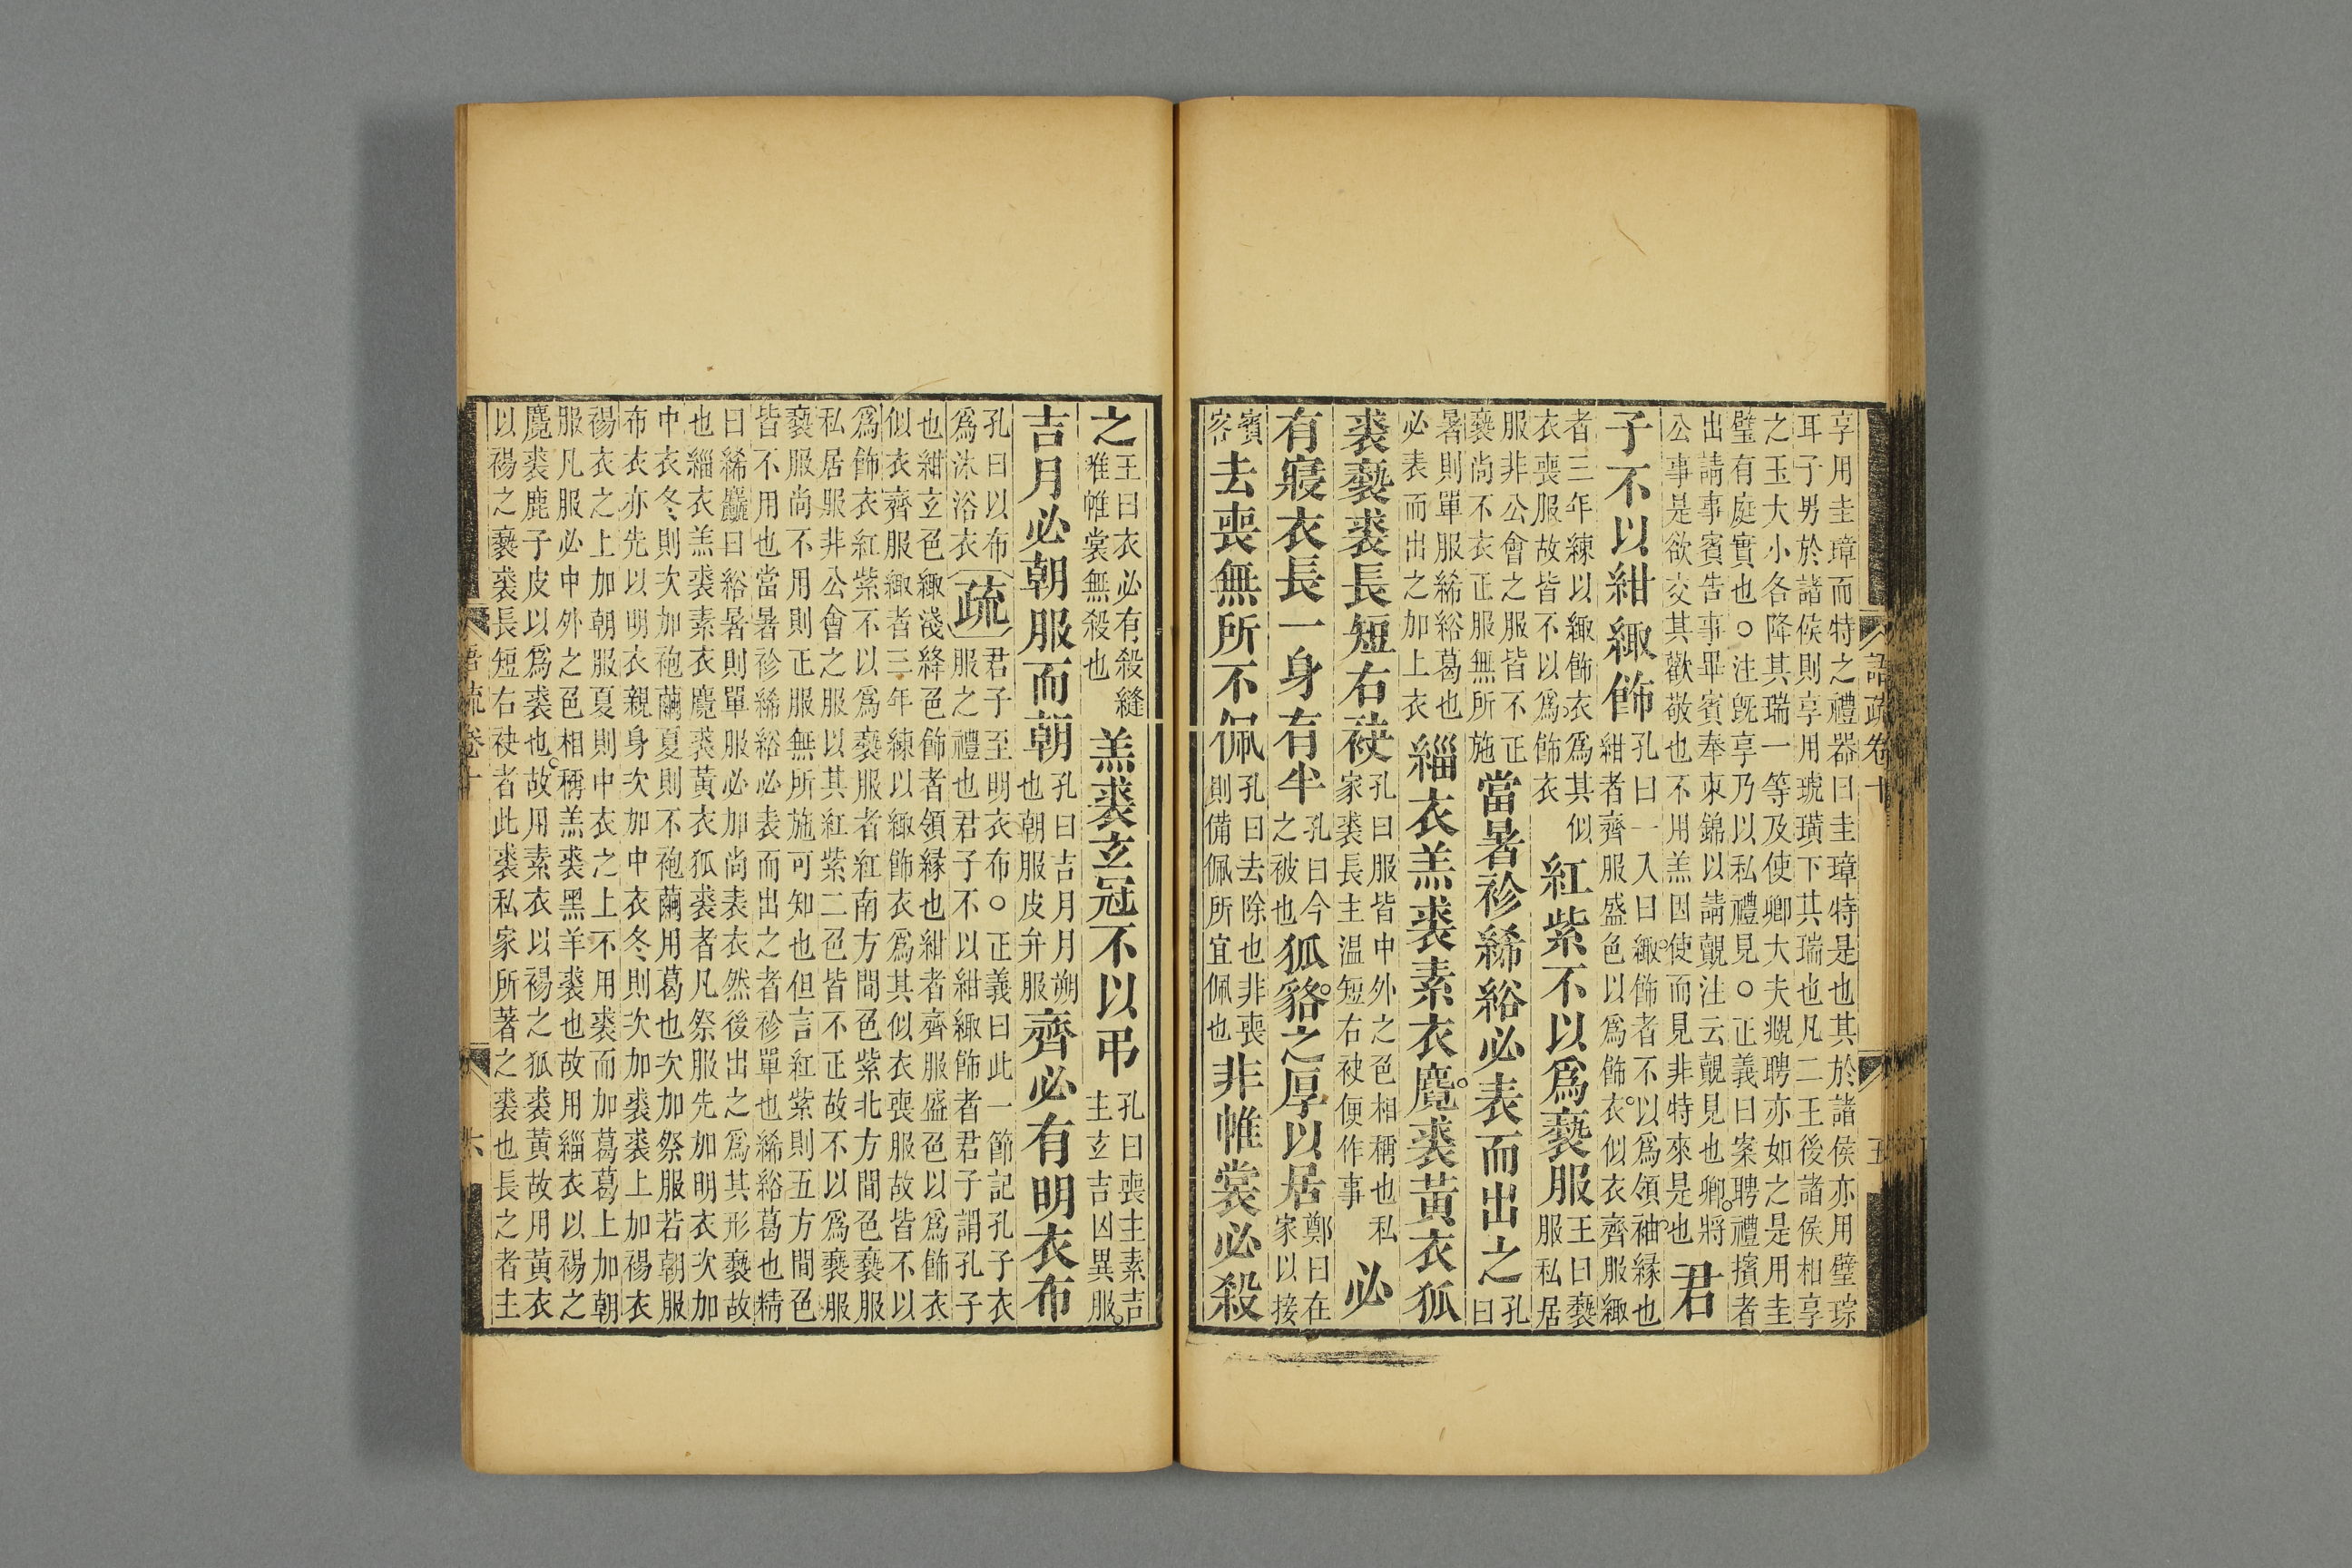 語疏卷十 五
享用圭璋而特之禮器曰圭璋特是也其於諸侯亦用璧琮
耳子男於諸侯則享用琥璜下其瑞也凡二王後諸侯相享
之玉大小各降其瑞一等及使卿大夫覜聘亦如之是用圭
璧有庭實也○注旣享乃以私禮見○正義曰案聘禮擯者
出請事賓告事畢賓奉束錦以請覿注云覿見也鄉將
公事是欲交其歡敬也不用羔因使而見非特來是也 君
子不以紺緅飾 孔曰一入曰緅飾者不以爲領袖縁也紺者齊服盛色以爲飾衣似衣齊服緅
者三年練以緅飾衣爲其似衣喪服故皆不以爲飾衣 紅紫不以爲褻服 王曰褻服私居
服非公會之服皆不正褻尚不衣正服無所施 當暑袗絺綌必表而出之 孔曰
暑則單服絺綌葛也必表而出之加上衣 緇衣羔裘素衣麑裘黃衣狐
裘褻裘長短右袂 孔曰服皆中外之色相稱也私家裘長主温短右袂便作事 必
有寢衣長一身有半 孔曰今之被也 狐貉之厚以居 鄭曰在家以接
賓客 去喪無所不佩 孔曰去除也非喪則備佩所宜佩也 非帷裳必殺
之 王曰衣必有殺縫唯帷裳無殺也 羔裘玄冠不以弔 孔曰喪主素吉主玄吉凶異服
吉月必朝服而朝 孔曰吉月月朔也朝服皮弁服 齊必有明衣布
孔曰以布爲沐浴衣 疏 君子至明衣布○正義曰此一節記孔子衣服之禮也君子不以紺緅飾者君子謂孔子
也紺玄色緅淺絳色飾者領縁也紺者齊服盛色以爲飾衣
似衣齊服緅者三年練以緅飾衣爲其似衣喪服故皆不以
爲飾衣紅紫不以爲褻服者紅南方間色紫北方間色褻服
私居服非公會之服以其紅紫二色皆不正故不以爲褻服
褻服尚不用則正服無所施可知也但言紅紫則五方間色
皆不用也當暑袗絺綌必表而出之者袗單也絺綌葛也精
曰絺麤曰綌暑則單服必加尚表衣然後出之爲其形褻故
也緇衣羔裘素衣麑裘黃衣狐裘者凡祭服先加明衣次加
中衣冬則次加袍繭夏則不袍繭用葛也次加祭服若朝服
布衣亦先以明衣親身次加中衣冬則次加裘裘上加裼衣
裼衣之上加朝服夏則中衣之上不用裘而加葛葛上加朝
服凡服必中外之色相稱羔裘黑羊裘也故用緇衣以裼之
麑裘鹿子皮以爲裘也故用素衣以裼之狐裘黃故用黃衣
以裼之褻裘長短右袂者此裘私家所著之裘也長之者主